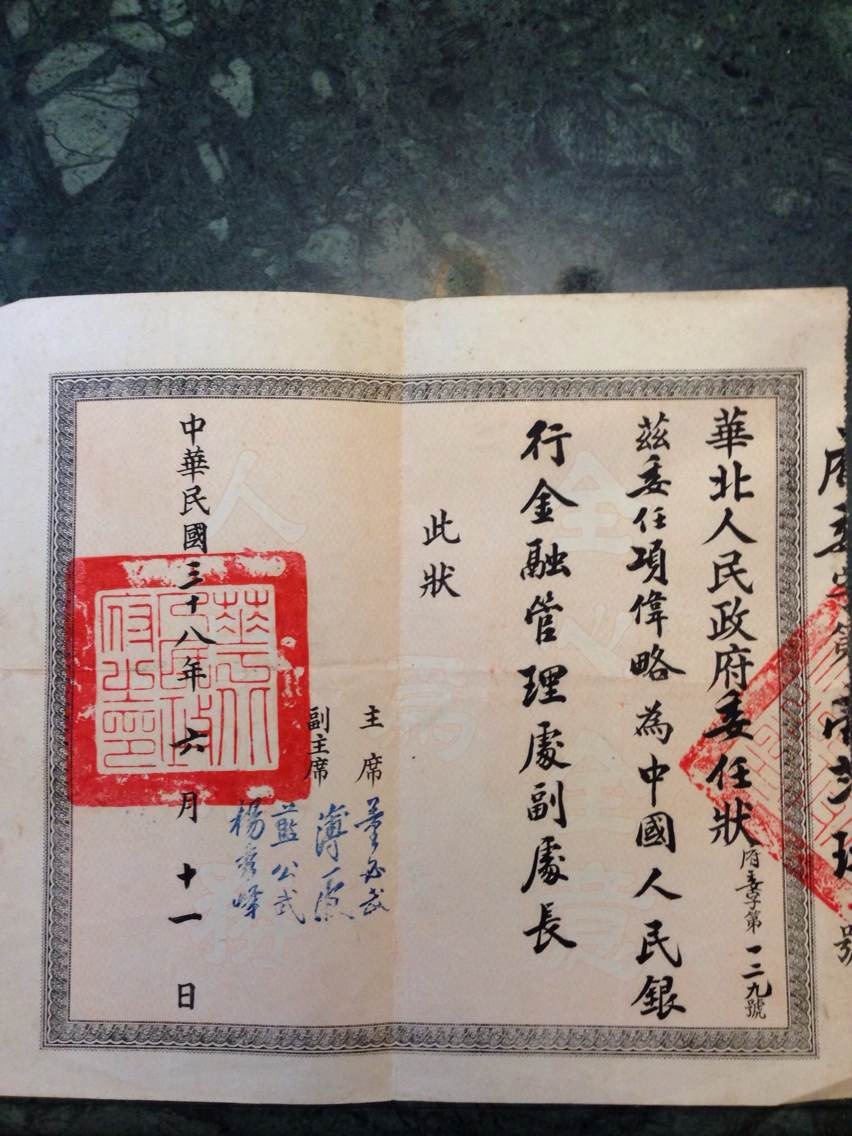 華北人民政府委任狀
府委字第一二九號
茲委任項偉略為中國人民銀
行金融管理處副處長
此狀
主席 董必武
副主席 薄一波
藍公武
楊秀峰
中華民國三十八年六月十一日
華北人民政府之印